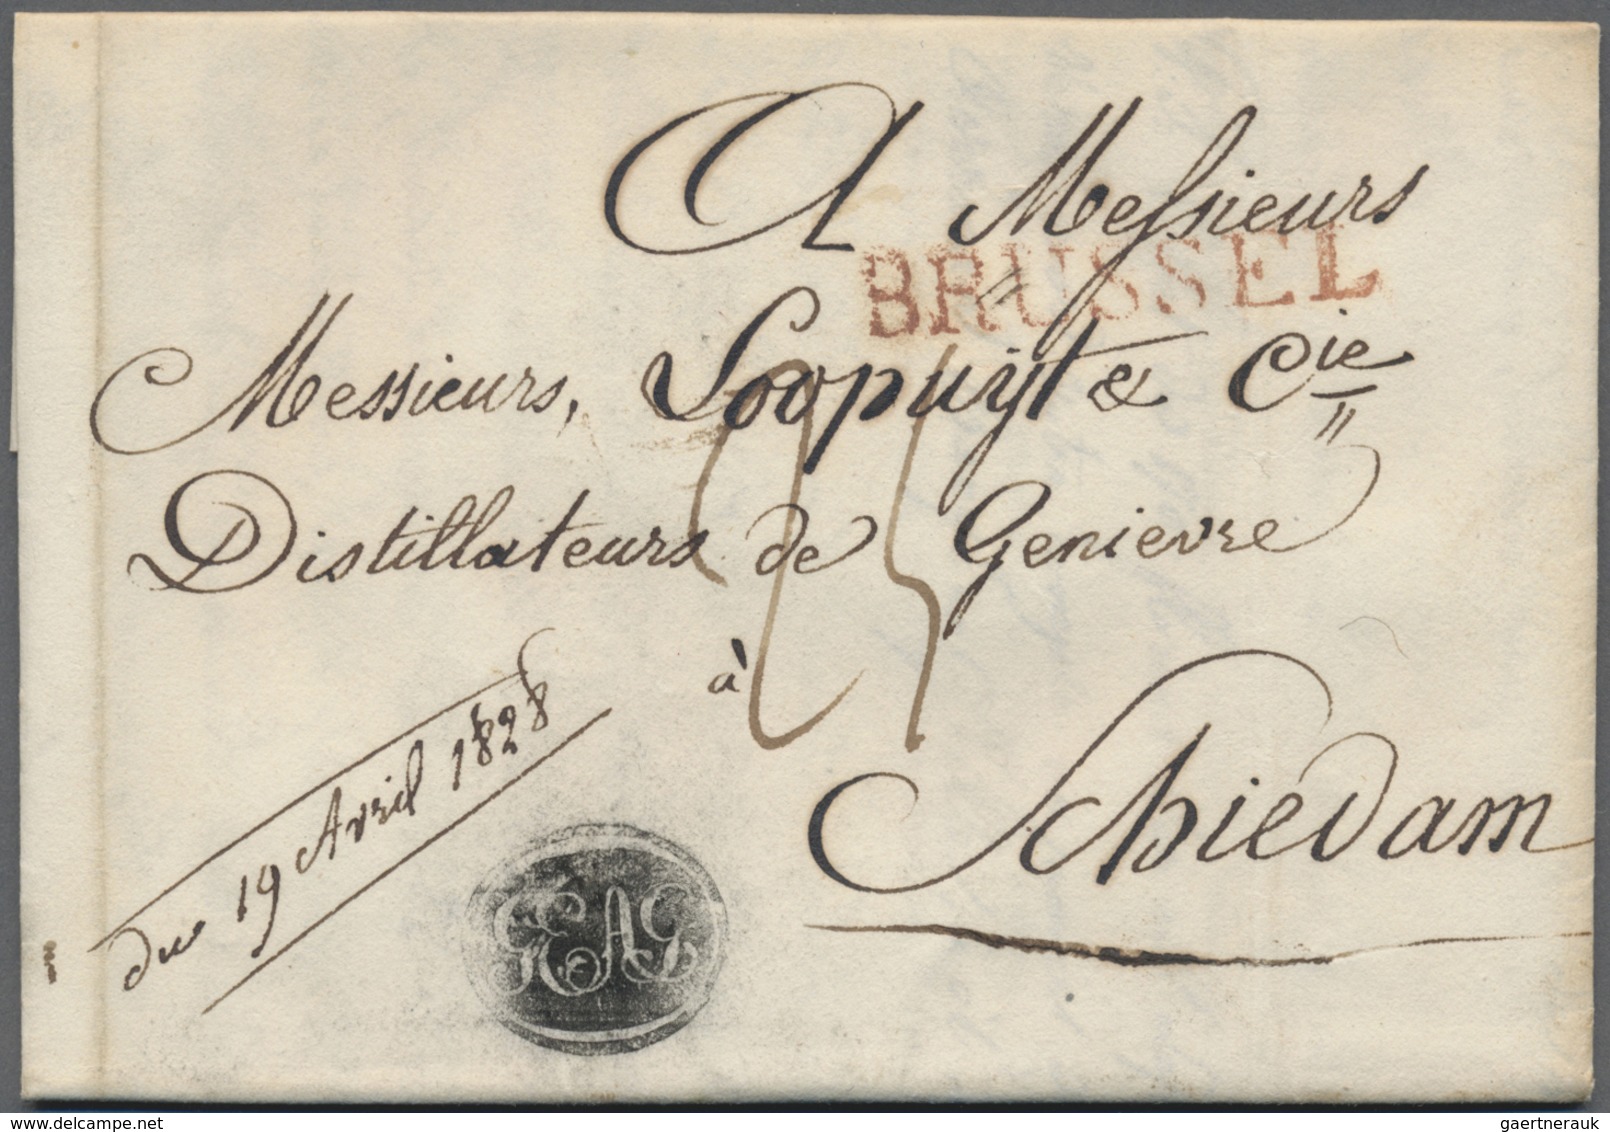 A Messieurs
BRUSSEL
Messieurs, Loopuyt & Cie
Distillateurs de Genievre
à
Schiedam
du 19 Avril 1828
delcampe.net
gaertnerauk